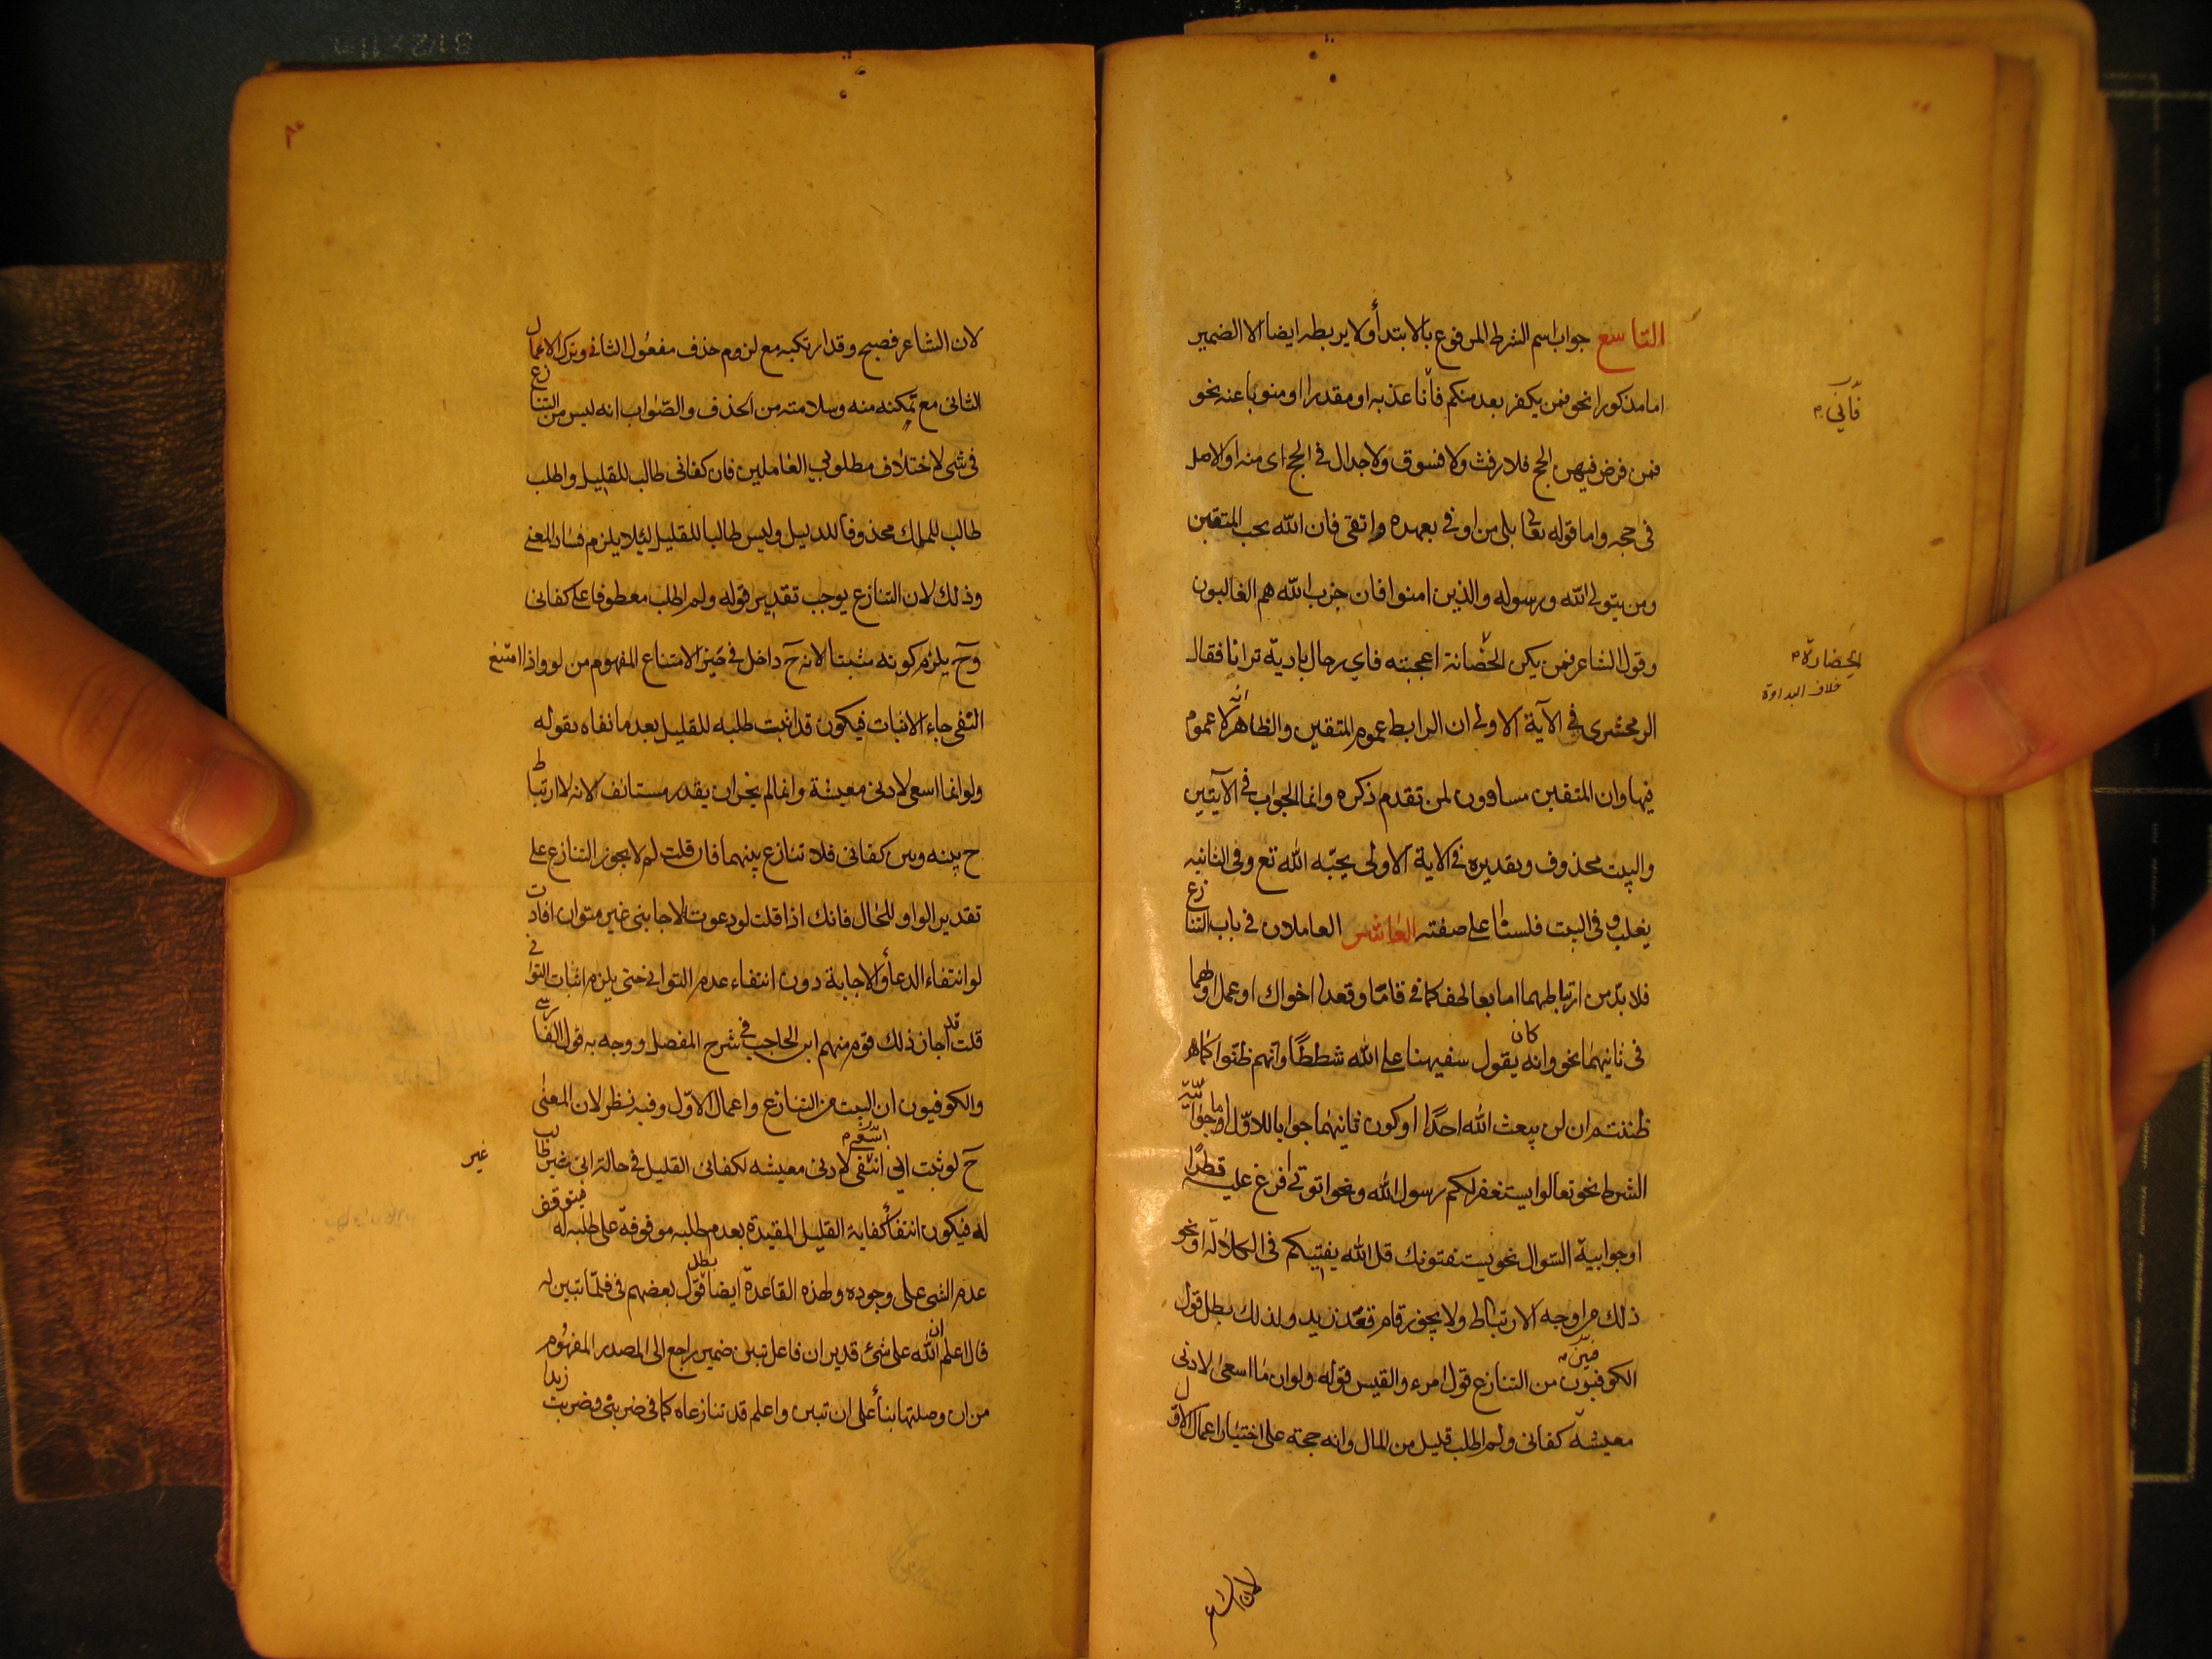 التاسع جواب اسم الشرط المرفوع بالابتدأ ولا يربطه ايضا الا الضمير
اما مذكورا نحو فمن يكفر بعد منكم فانا عذبه او مقدرا او منوبا عنه نحو
فانى
فمن فرض فيهن الحج فلا رفث ولا فسوق ولا جدال في الحج اى منه او الاصل
في حجه واما قوله تعالى بلى من اوفى بعهده واتقى فان الله يحب المتقين
ومن يتولى الله ورسوله والذين امنوا فان حزب الله هم الغالبون
وقول الشاعر فمن يكن الحضانة اعجبته فاي رجال بادية ترانا فقال
الحضارة
خلاف البداوة
الزمخشرى في الآية الاولى ان الرابط عموم المتقين والظاهر انه لا عموم
فيها وان المتقين مساوون لمن تقدم ذكره وانما الجواب في الآيتين
والبيت محذوف وتقديره في الاية الاولى يحبه الله تع وفى الثانيه
يغلب و فى البيت فلسنا على صفته العاشر العاملان في باب التنازع
فلا بد من ارتباطهما اما بعاطف كما في قاما وقعدا اخواك او عمل اولهما
فى ثانيهما نحو وانه كان يقول سفيهنا على الله شططا وانهم ظنوا كما
ظننتم ان لن يبعث الله احدا او كون ثانيهما جوابا للاول اما جوابية
الشرط نحو تعالوا يستغفر لكم رسول الله ونحو اتوني افرغ عليه قطرا
او جوابية السوال نحو يستفتونك قل الله يفتيكم فى الكلالة او نحو
ذلك من اوجه الارتباط ولا يجوز قام قعد زيد ولذلك بطل قول
الكوفيون من التنازع قول امرء والقيس قوله ولو ان ما اسعى لادنى
فيين
معيشه كفانى ولم اطلب قليل من المال وانه حجة على اختيار اعمال الاول
لان الشاعر
لان الشاعر فصيح وقد ارتكبه مع لزوم حذف مفعول الثانى وترك الاعمال
الثانى مع تمكنه منه وسلامته من الحذف والصواب انه ليس من التنازع
فى شى لاختلاف مطلوبي العاملين فان كفانى طالب للقليل واطلب
طالب للملك محذوفا للدليل وليس طالبا للقليل لئلا يلزم فساد المعنى
وذلك لان التنازع يوجب تقدير قوله ولم اطلب معطوفا على كفانى
وح يلزم كونه مثبتا لانه ح داخل في حيز الامتناع المفهوم من لو واذا امتنع
النفى جاء الاثبات فيكون قد اثبت طلبه للقليل بعد ما نفاه بقوله
ولو انما اسعى لادنى معيشة وانما لم يجز ان يقدر مستانف لانه لا ارتباط
ح بينه وبين كفانى فلا تنازع بينهما فان قلت لم لا يجوز التنازع على
تقدير الواو للحال فانك اذا قلت لو دعوت لاجابنى غير متوان افادت
لو انتفاء الدعأ والاجابة دون انتفاء عدم التوانى حتى يلزم اثبات التوانى
قلت قد اجاز ذلك قوم منهم ابن الحاجب في شرح المفصل ووجه به قول الفارسى
والكوفيون ان البيت من التنازع واعمال الاول وفيه نظر لان المعنى
ح لو ثبت انى انتفى لادنى معيشه لكفانى القليل في حالة انى غير طالب
اسعى
غير
له فيكون انتفأ كفاية القليل المقيدة بعدم طلبه موقوفة على طلبه له
فيتوقف
عدم الشى على وجوده ولهذه القاعدة ايضا بطل قول بعضهم في فلما تبين له
قال اعلم ان الله على شئ قدير ان فاعل تبين ضمير راجع الى المصدر المفهوم
من ان وصلتها بنأ على ان تبين واعلم قد تنازعاه كما في ضربنى وضربت زيدا